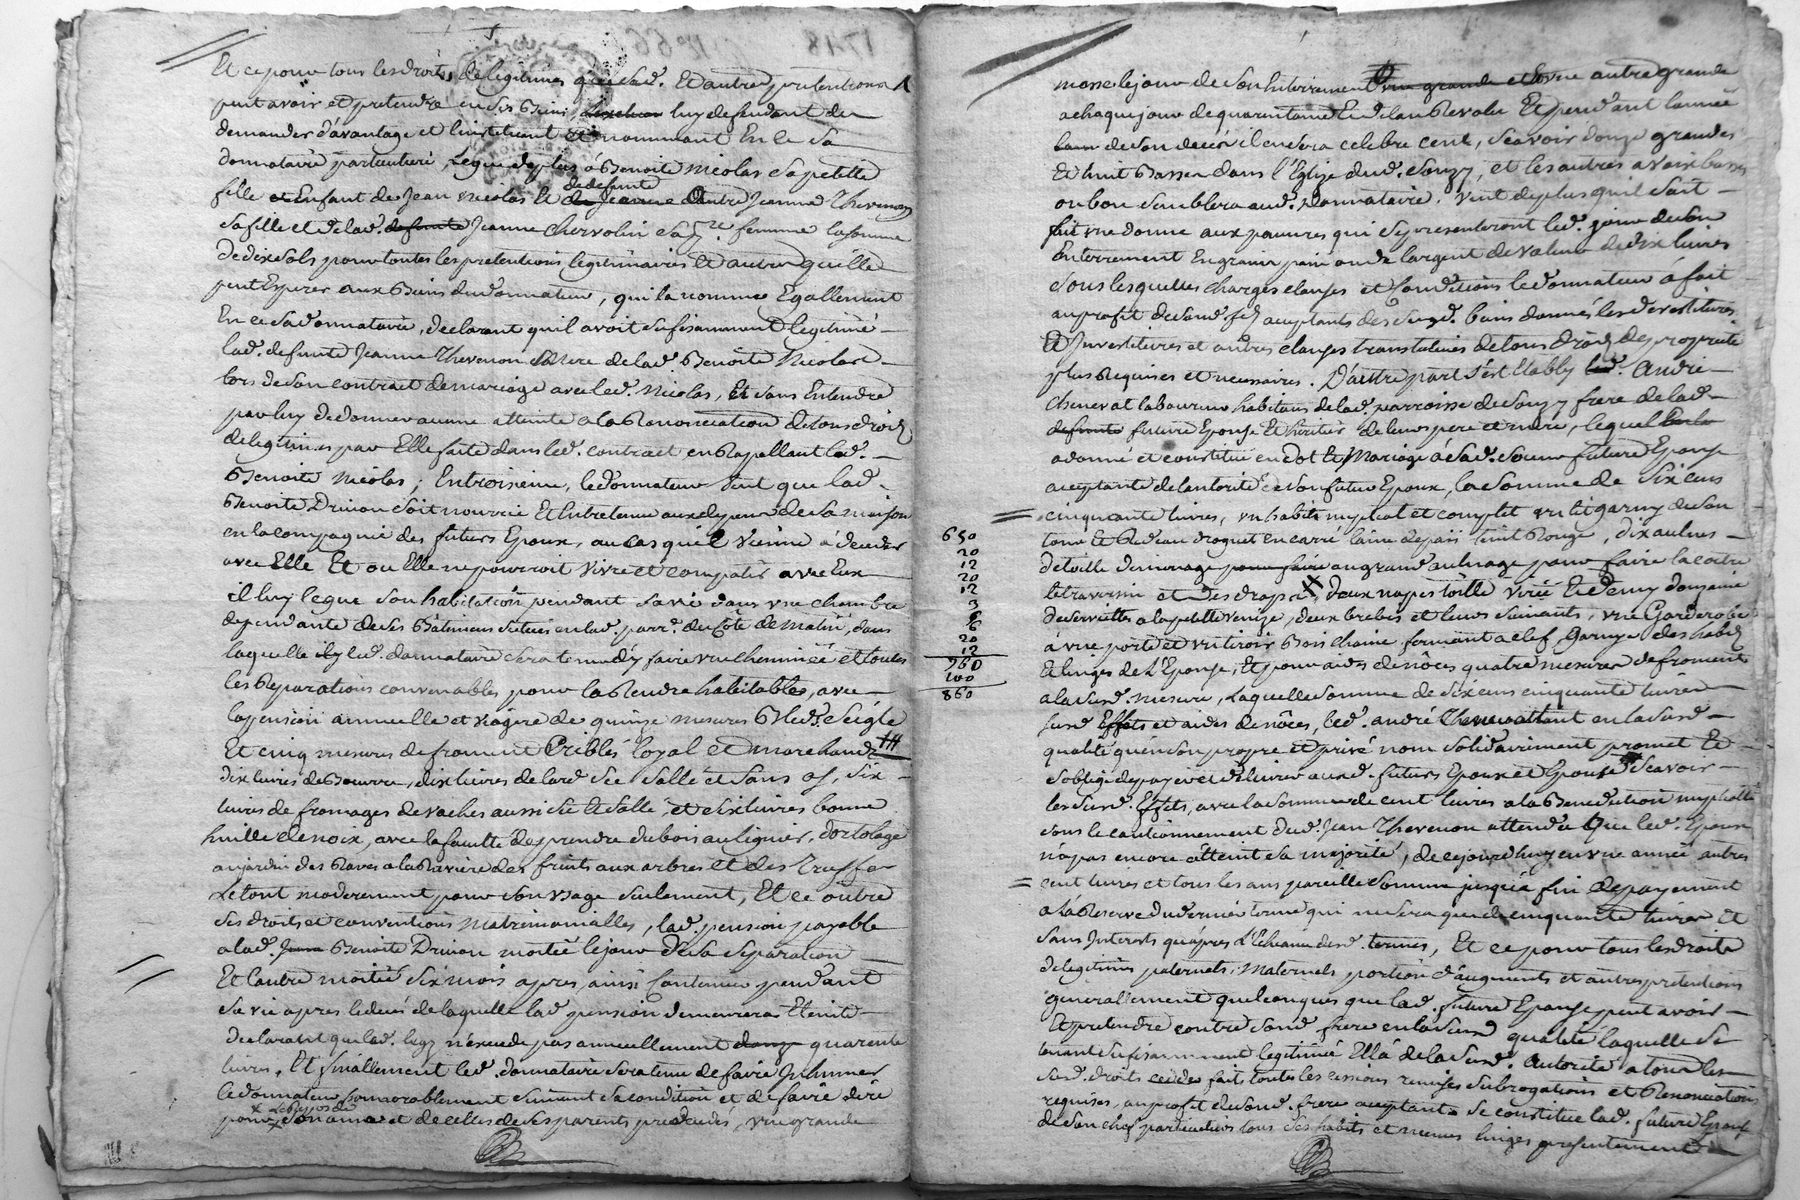 Et ce pour tous les droits de legitimes que sad. Et autres pretentions
peut avoir et pretendre en ses biens, luy defendant de
demander d'avantage et l'instituant et nommant En ce Sa
donnataire particuliere, Legue deplus à Benoite Nicolas sa petitte
fille et Enfant de Jean Nicolas et de defunte Jeanne Thevenon
sa fille et de lad. defunte Jeanne Chervolin sa femme la somme
De dix sols pour toutes les pretentions legitimaires Et autres qu'elle
peut Esperer aux Biens du donnateur, qui la nomme Egallement
En ce Sa donnataire, declarant qu'il avoit sufisamment legitimé
lad. defunte Jeanne Thevenon Mere de lad. Benoite Nicolas
lors de son contract de mariage avec led. Nicolas, Et sans Entendre
par luy de donner aucune atteinte a la Renonciation de tous droits
de legitimes par Elle faite dans led. contract en Rapellant lad.
Benoite Nicolas; Entroisieme, le donnateur veut que lad.
Benoite Drivon soit nourrie Et Entretenue aux depens de sa maison
en la compagnie des futurs Epoux, au cas qu'il vienne a deceder
avec Elle Et ou Elle ne pourroit vivre et compatir avec Eux
il luy legue son habitation pendant sa vie dans une chambre
dependante de ses Batimens situés en lad. parr. du Coté de Matin, dans
laquelle led. donnataire sera tenu d'y faire une cheminée et toutes
les Reparations convenables pour la Rendre habitables, avec
la pension annuelle et viagere de quinze mesures Bled Seigle
Et cinq mesures de froment Criblés loyal et marchand
dix livres de Beurre, dix livres de lard Sec Sallé et Sans os, six
livres de fromages de vaches aussi Sec et Salle, et six livres bonne
huille de noix, avec la faculté de prendre du bois au lignier, d'ortolage
au jardin des Raves a la Raviere des fruits aux arbres et des Truffes
Le tout moderement pour son usage seulement, Et ce outre
ses droits et conventions Matrimonialles, lad. pension payable
a lad. Benoite Drivon moitié le jour de sa Separation
Et l'autre moitié Six mois apres, ainsi Continuer pendant
Sa vie apres le decés de laquelle lad. pension demeurera Eteinte
Declarant que lad. legs n'excede pas annuellement quarente
livres, Et finallement led. donnataire sera tenu de faire Inhumer
le donnateur honnorablement suivant sa condition et de faire dire
pour le Repos de son ame et de celles de ses parents predecedés, une grande
messe le jour de son Enterrement une grande et une autre grande
a chaque jour de quarantaine Et de l'an Revolu Et pendant l'année
de son decés il en sera celebré cent, scavoir douze grandes
Et huit Basses dans l'Eglise dud. Souzy, et les autres a voix basses
ou bon semblera aud. Donnataire. Veut de plus qu'il soit
fait une donne aux pauvres qui se presenteront led. jour de son
Enterrement En grain pain ou de l'argent de valeur de dix livres
Sous lesquelles charges clauses et Conditions le donnateur à fait
au profit de sond. fils acceptants des susd. biens donnés les devestitures
Et Investitures et autres clauses translatives de tous droits de proprieté
plus Requises et necessaires. D'autre part s'est Etably led. André
Chenevat laboureur habitant de lad. parroisse de Souzy frere de lad.
future Epouse Et heritier de leurs pere et mere, lequel
a donné et constitué en dot Et Mariage á sad. Soeur future Epouse
acceptante de l'autorité de son futur Epoux, la Somme de Six cens
cinquante livres, un habit nuptial et complet un lit garny de son
tour Et Rideau droguet en carré laine Depaii teint Rouge, dix aulnes
de toille de menage au grand aulnage pour faire la coitre
le traversin et des draps, deux napes toille virée Et demy douzaine
de serviettes a la petitte Venize, deux brebis et leurs suivants, une Garderobe
á une porte et un tiroir Bois chaine fermant a clef, Garnye des habits
Et linges de L'Epouse, Et pour aides de nôces quatre mesures de froment
a la susd. mesure, Laquelle somme de six cens cinquante livres
susd. Effets et aides de nôces, led. André Chenevat tant en la susd.
qualité qu'en son propre et privé nom Solidairement promet Et
s'oblige de payer et délivrer auxd. futurs Epoux et Epouse Scavoir
les susd. Effets, avec la somme de cent livres a la Benediction nuptialle
sous le cautionnement dud. Jean Thevenon attendu Que led. Epoux
n'a pas encore atteint sa majorité, de ce jourd'huy en une année autres
cent livres et tous les ans pareille Somme jusqu'a fin de payement
a la Reserve du dernier terme qui ne sera que de cinquante livres Et
sans Interets qu'apres L'Echeance desd. termes, Et ce pour tous les droits
de legitimes paternels, Maternels portion d'augments et autres pretentions
generallement quelconques que lad. future Epouse peut avoir
Et pretendre contre sond. frere en la susd. qualité laquelle se
tenant sufisamment legitimée Ella de la susd. autorité a tous les
susd. droits cedés fait toutes les cessions remises subrogations et Renonciations
requises, au profit de sond. frere acceptant. Se constitue lad. future Epouse
de son chef particulier tous ses habits et menus linges presentement
650
20
12
20
12
3
6
20
12
760
100
860